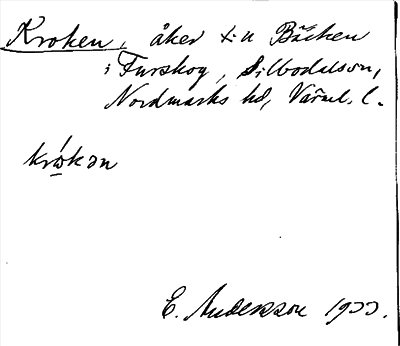 Kroken, åker t. n Bäcken
i Furskog, Silbodalssn,
Nordmarks hd, Värml. l.
krωkən
E. Andersson 1933.